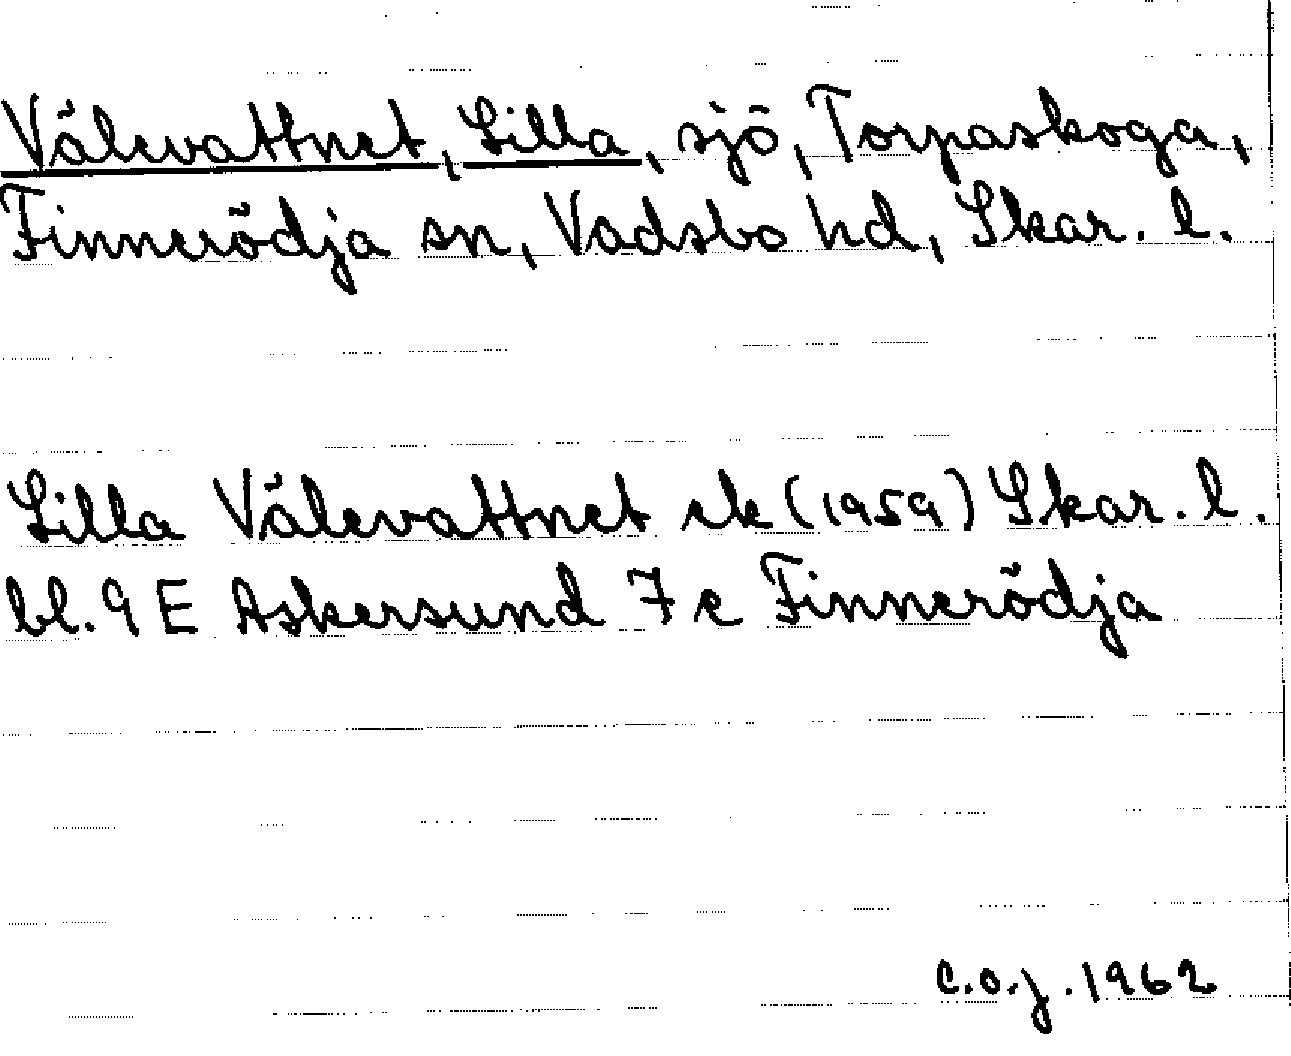 Välevattnet, Lilla, sjö, Torpaskoga,
Finnerödja sn, Vadsbo hd, Skar. l.
Lilla Välevattnet ek (1959) Skar. l.
bl. 9 E Askersund 7 c Finnerödja
C.O.J. 1962